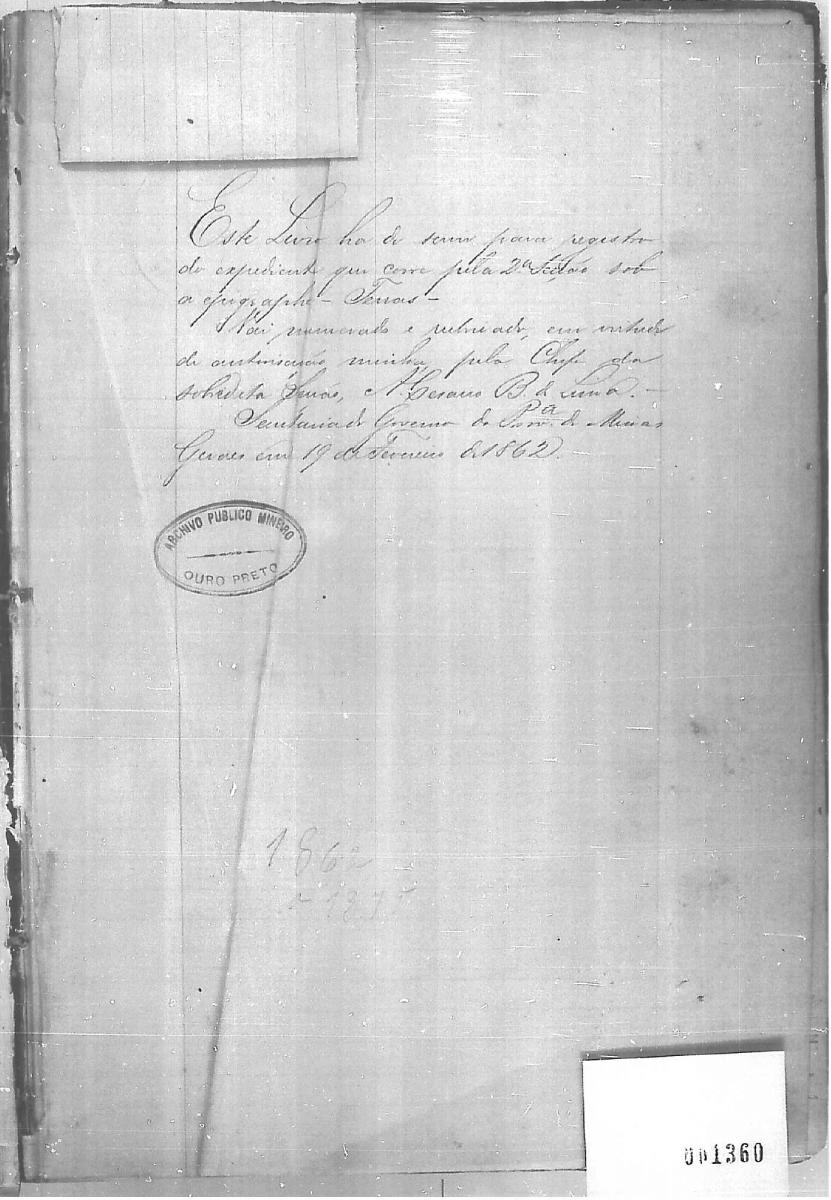 Este Livro ha de servir para registro
do expediente que corre pela 2.ª Secção sob
a epigraphe - Terras -
Vai numerado e rubricado, em virtude
de autorisação minha, pelo Chefe da
sobredita Secção, A. Cesario B. de Lima. -
Secretaria do Governo da Prov.ª de Minas
Geraes em 19 de Fevereiro de 1862. -
ARCHIVO PUBLICO MINEIRO
OURO PRETO
1862
001360